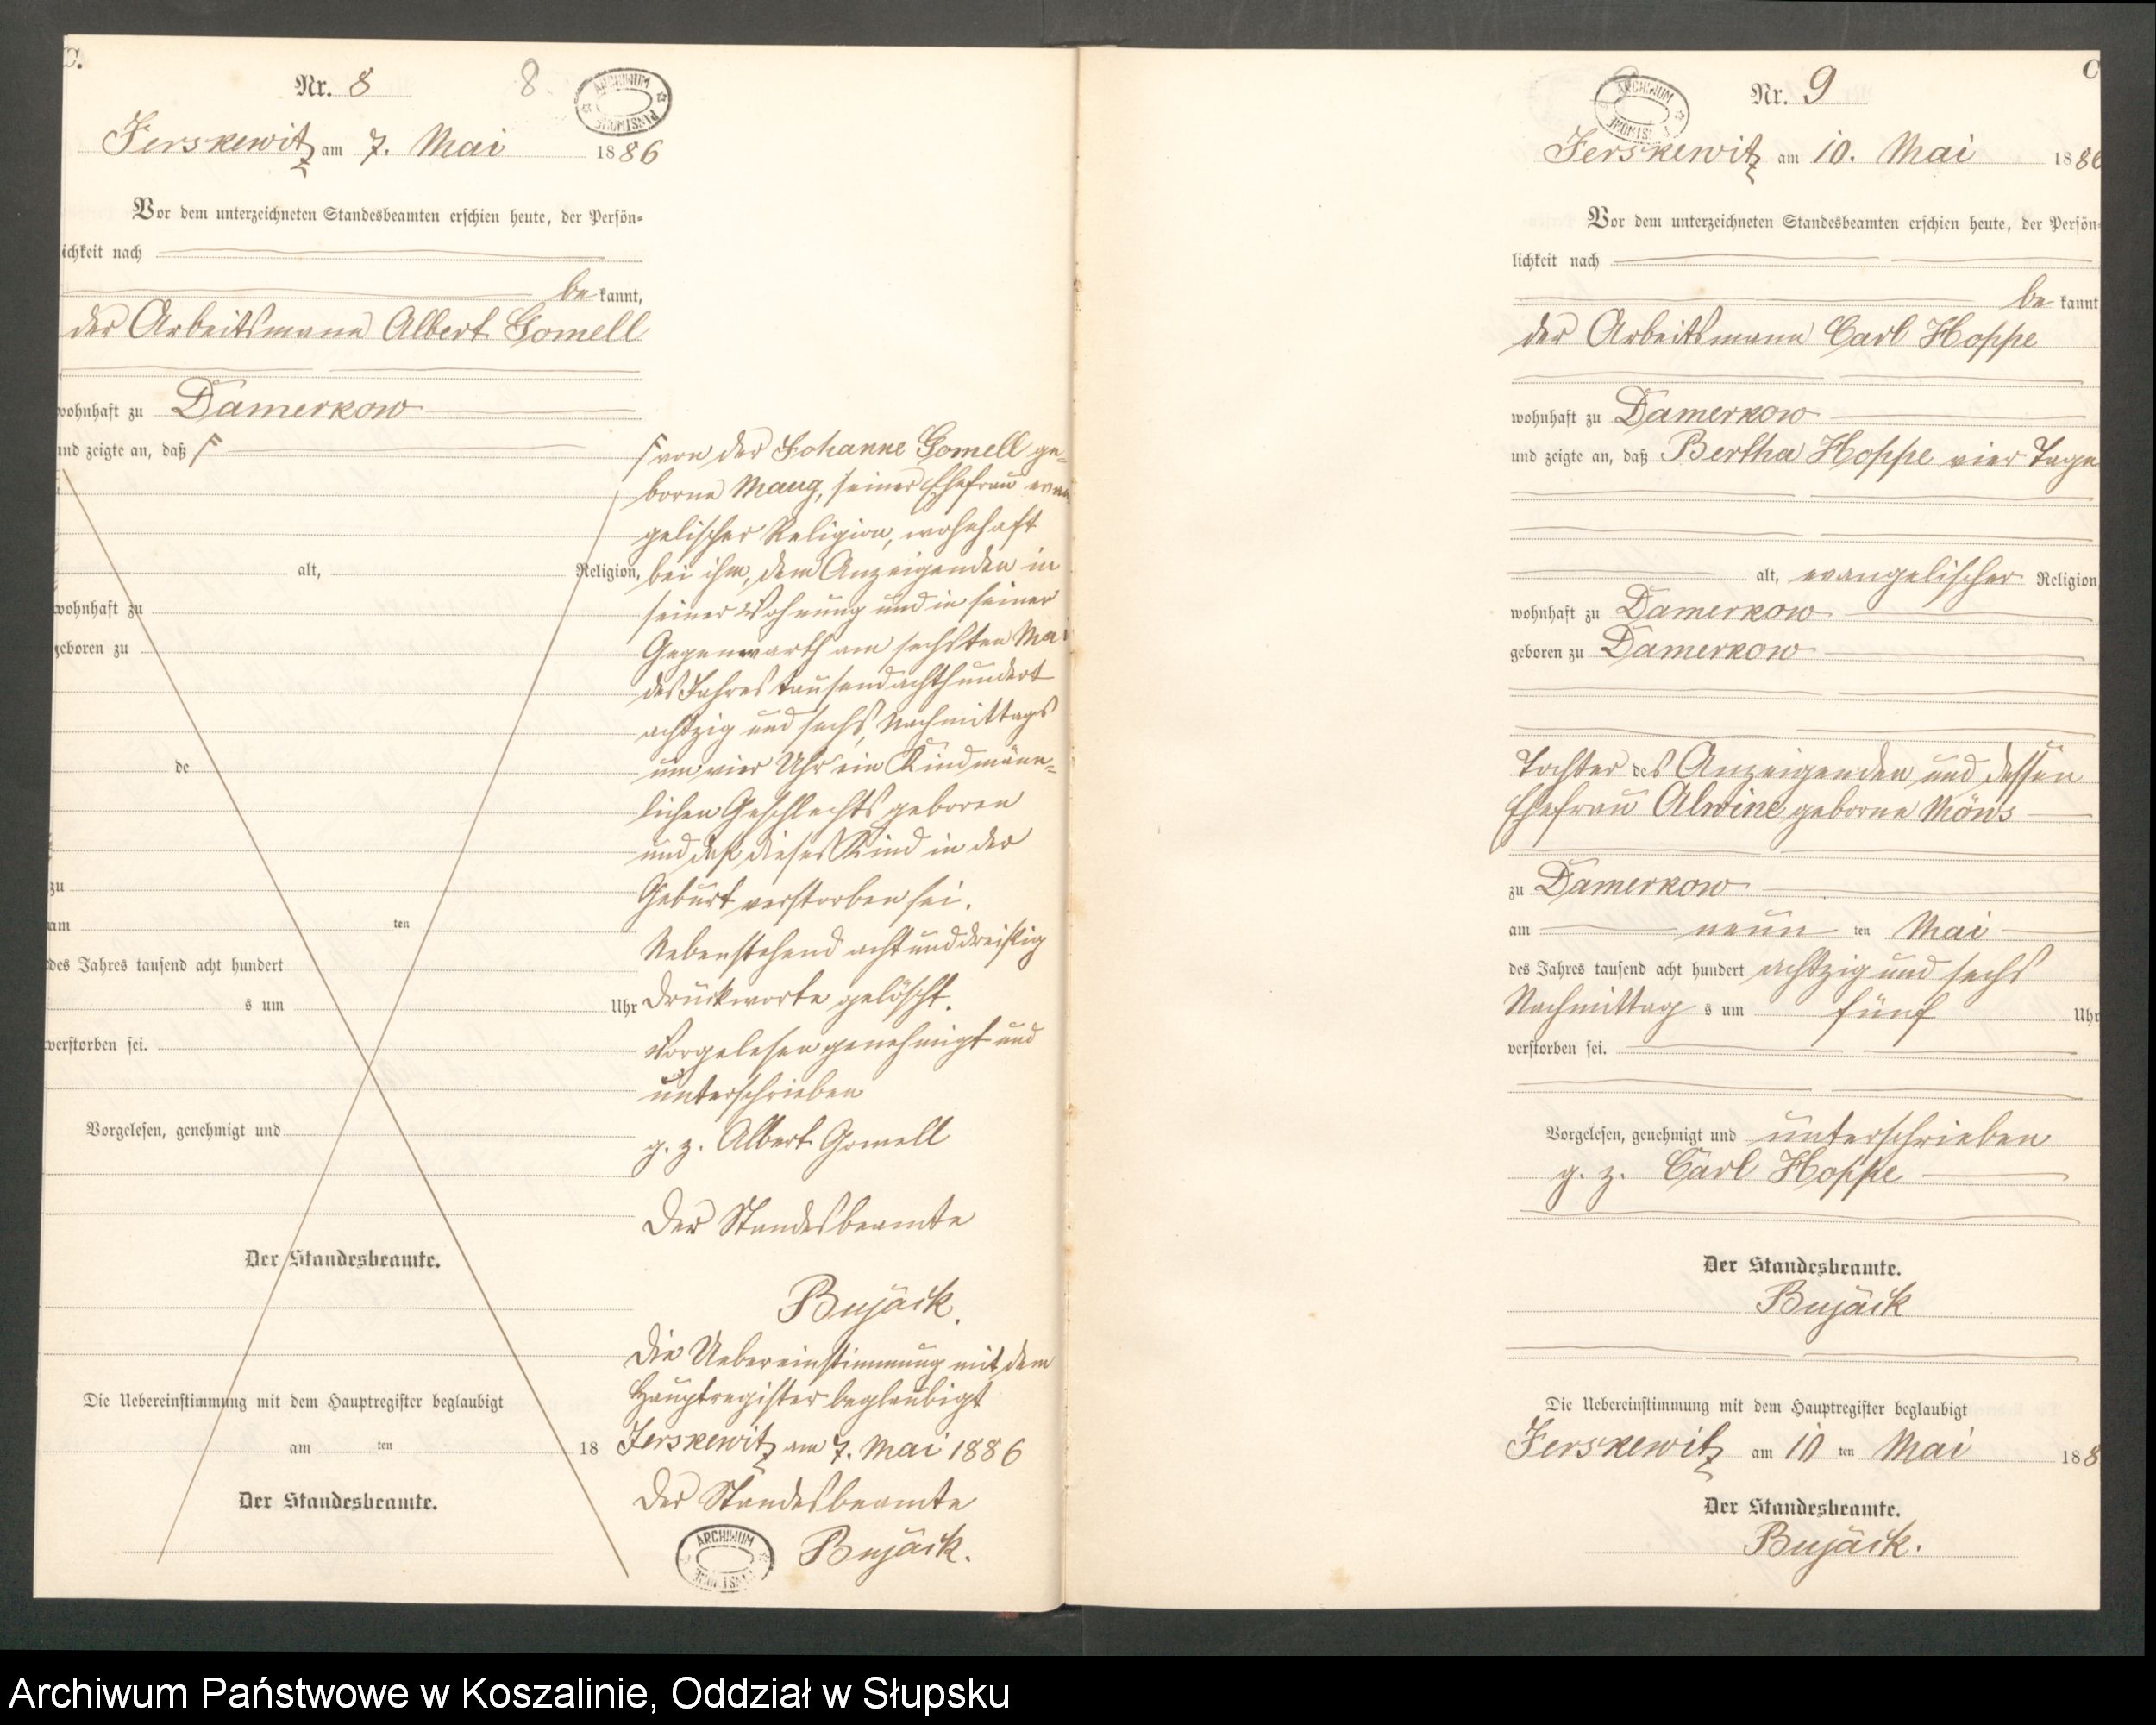 C.
Nr. 8
8
ARCHIWUM PAŃSTWOWE
Jerskewitz am 7. Mai 1886
Vor dem unterzeichneten Standesbeamten erschien heute, der Persön=
lichkeit nach
be kannt,
der Arbeitsmann Albert Gomell
wohnhaft zu Damerkow
und zeigte an, daß
alt, Religion,
wohnhaft zu
geboren zu
de
zu
am ten
des Jahres tausend acht hundert
s um Uhr
verstorben sei.
Vorgelesen, genehmigt und
Der Standesbeamte.
Die Uebereinstimmung mit dem Hauptregister beglaubigt
am ten 18
Der Standesbeamte.
von der Johanne Gomell ge=
borne Maug, seiner Ehefrau evan
gelischer Religion, wohnhaft
bei ihm, dem Anzeigenden in
seiner Wohnung und in seiner
Gegenwarth am sechsten Mai
des Jahres tausend achthundert
achtzig und sechs, Nachmittags
um vier Uhr ein Kind männ=
lichen Geschlechts geboren
und daß dieses Kind in der
Geburt verstorben sei.
Nebenstehend acht und dreißig
Druckworte gelöscht.
Vorgelesen genehmigt und
unterschrieben
g. z. Albert Gomell
Der Standesbeamte
Bujäck.
Die Uebereinstimmung mit dem
Hauptregister beglaubigt
Jerskewitz am 7. Mai 1886
Der Standesbeamte
Bujäck.
ARCHIWUM PAŃSTWOWE
C
Nr. 9
ARCHIWUM PAŃSTWOWE
Jerskewitz am 10. Mai 1886
Vor dem unterzeichneten Standesbeamten erschien heute, der Persön=
lichkeit nach
be kannt
der Arbeitsmann Carl Hoppe
wohnhaft zu Damerkow
und zeigte an, daß Bertha Hoppe vier Tage
alt, evangelischer Religion
wohnhaft zu Damerkow
geboren zu Damerkow
Tochter des Anzeigenden und dessen
Ehefrau Alwine geborne Möws
zu Damerkow
am neun ten Mai
des Jahres tausend acht hundert achtzig und sechs
Nachmittag s um fünf Uhr
verstorben sei.
Vorgelesen, genehmigt und unterschrieben
g. z. Carl Hoppe
Der Standesbeamte.
Bujäck
Die Uebereinstimmung mit dem Hauptregister beglaubigt
Jerskewitz am 10 ten Mai 188
Der Standesbeamte.
Bujäck.
Archiwum Państwowe w Koszalinie, Oddział w Słupsku